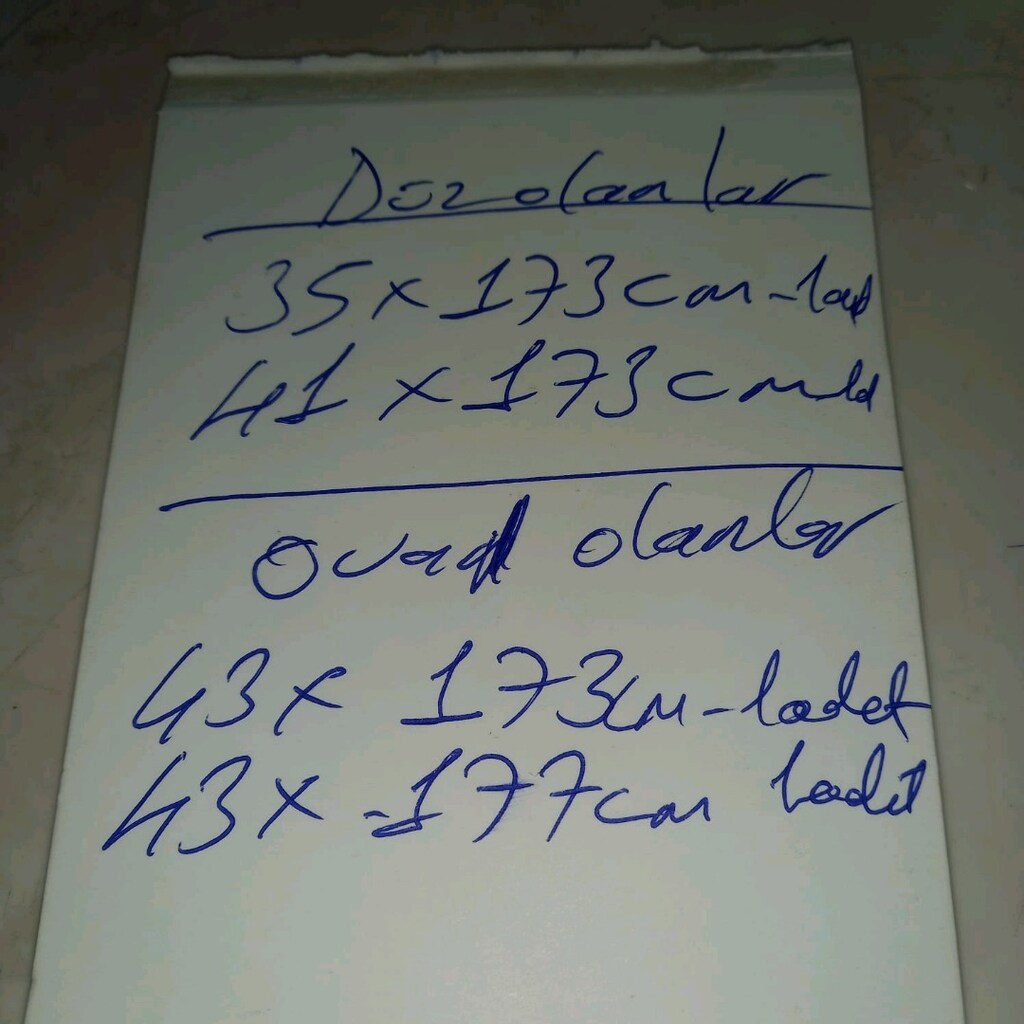 Düz olanlar
35 x 173 cm - 1ad
41 x 173 cm 1d
Oval olanlar
43 x 173 cm - 1adet
43 x 177 cm 1adet